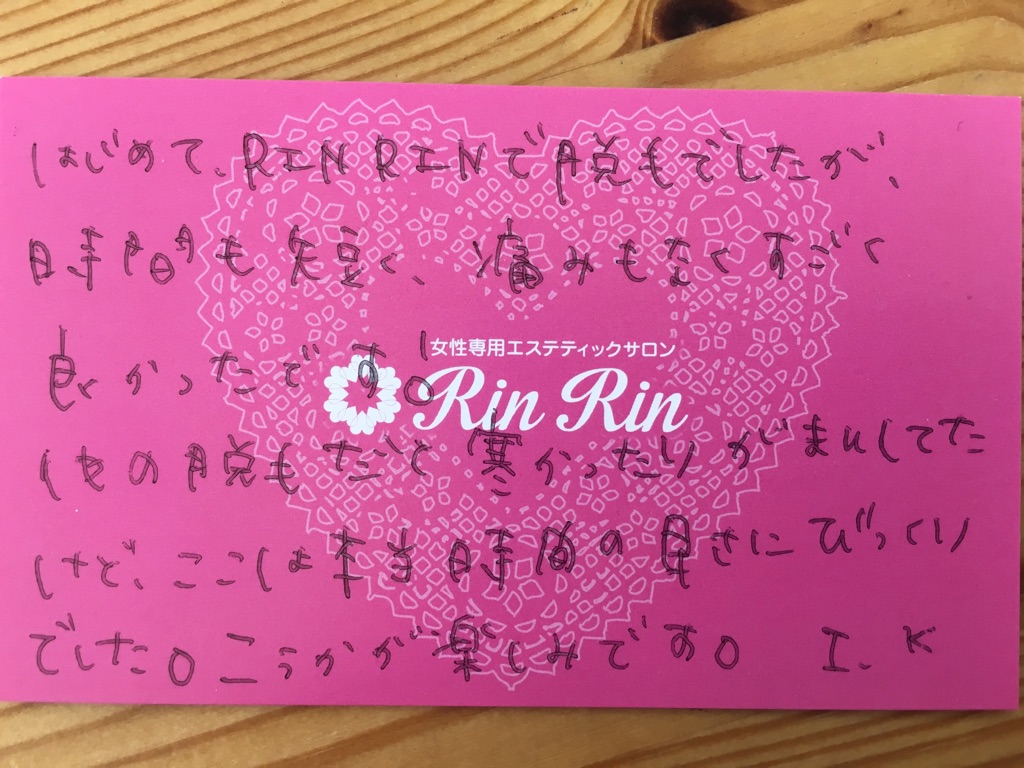 はじめて、RINRINで脱もでしたが、
時間も短く、痛みもなくすごく
女性専用エステティックサロン
良かったです!
Rin Rin
他の脱もだと寒かったりがまんしてた
けど、ここは本当時間の早さにびっくり
でした。こうかが楽しみです。 I.K